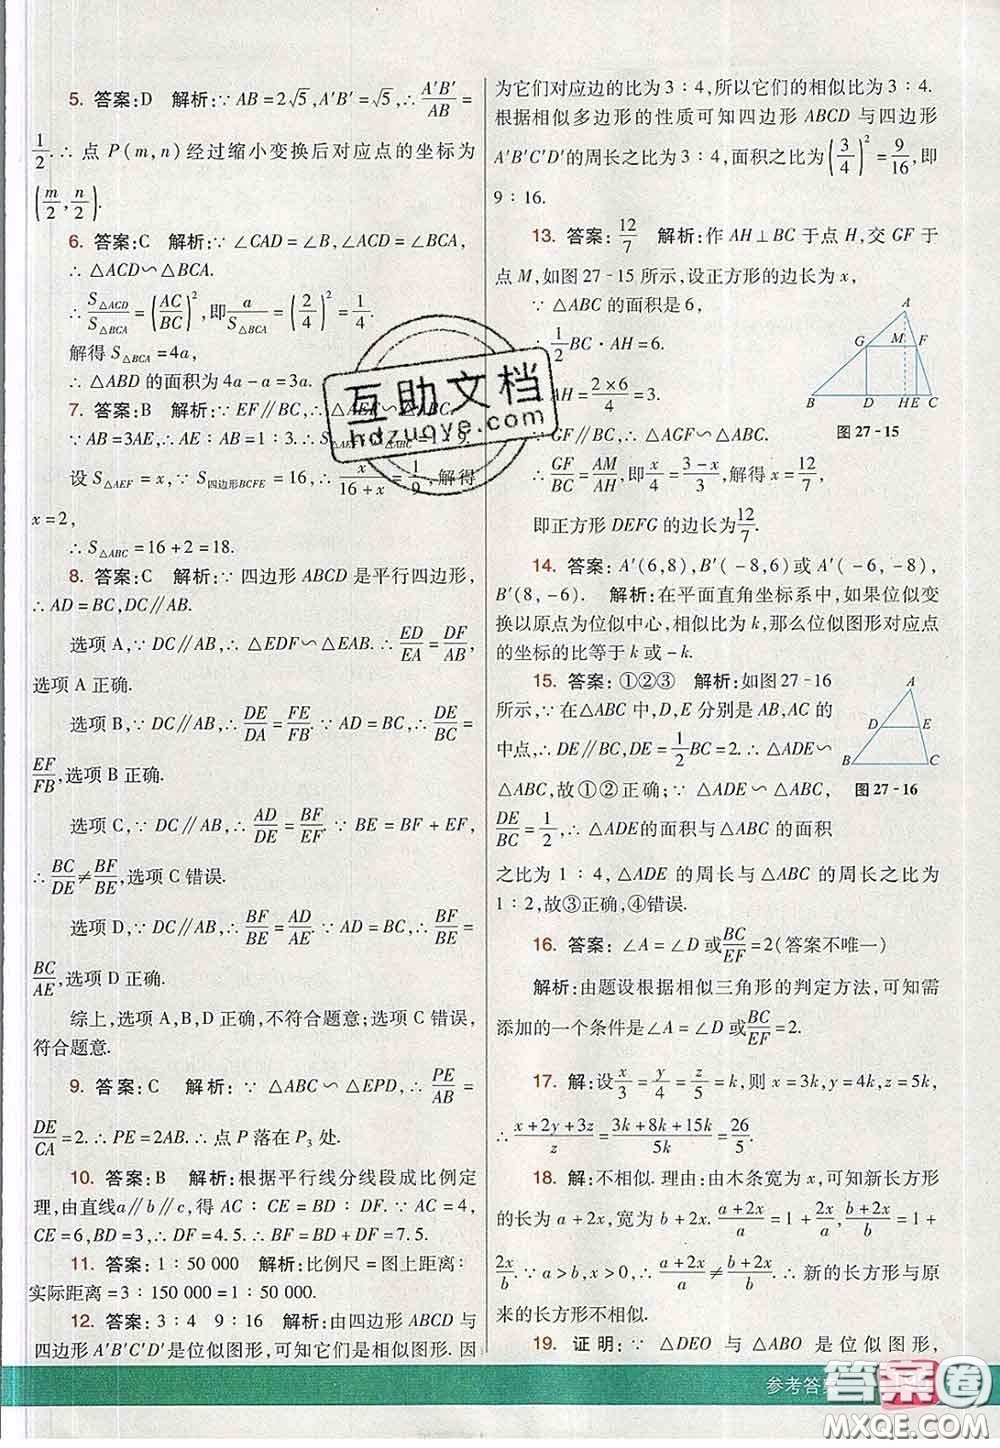 5. 答案:D 解析:∵ AB=2√5,A′B′=√5,∴ A′B′/AB =
1/2.∴ 点 P(m,n)经过缩小变换后对应点的坐标为
(m/2, n/2).
6. 答案:C 解析:∵ ∠CAD=∠B,∠ACD=∠BCA,
∴ △ACD∽△BCA.
∴ S△ACD/S△BCA = (AC/BC)²,即 a/S△BCA = (2/4)² = 1/4.
解得 S△BCA=4a,
∴ △ABD 的面积为 4a-a=3a.
7. 答案:B 解析:∵ EF∥BC,∴ △AEF∽△ABC.
∵ AB=3AE,∴ AE∶AB=1∶3.∴ S△AEF∶S△ABC=1∶9.
设 S△AEF=x,∵ S四边形BCFE=16,∴ x/(16+x) = 1/9,解得
x=2,
∴ S△ABC=16+2=18.
8. 答案:C 解析:∵ 四边形 ABCD 是平行四边形,
∴ AD=BC,DC∥AB.
选项 A,∵ DC∥AB,∴ △EDF∽△EAB.∴ ED/EA = DF/AB,
选项 A 正确.
选项 B,∵ DC∥AB,∴ DE/DA = FE/FB.∵ AD=BC,∴ DE/BC =
EF/FB,选项 B 正确.
选项 C,∵ DC∥AB,∴ AD/DE = BF/EF.∵ BE=BF+EF,
∴ BC/DE ≠ BF/BE,选项 C 错误.
选项 D,∵ DC∥AB,∴ BF/BE = AD/AE.∵ AD=BC,∴ BF/BE =
BC/AE,选项 D 正确.
综上,选项 A,B,D 正确,不符合题意;选项 C 错误,
符合题意.
9. 答案:C 解析:∵ △ABC∽△EPD,∴ PE/AB =
DE/CA =2.∴ PE=2AB.∴ 点 P 落在 P₃ 处.
10. 答案:B 解析:根据平行线分线段成比例定
理,由直线a∥b∥c,得 AC∶CE=BD∶DF.∵ AC=4,
CE=6,BD=3,∴ DF=4.5.∴ BF=BD+DF=7.5.
11. 答案:1∶50 000 解析:比例尺=图上距离∶
实际距离=3∶150 000=1∶50 000.
12. 答案:3∶4 9∶16 解析:由四边形 ABCD 与
四边形 A′B′C′D′是位似图形,可知它们是相似图形.因
为它们对应边的比为 3∶4,所以它们的相似比为 3∶4.
根据相似多边形的性质可知四边形 ABCD 与四边形
A′B′C′D′的周长之比为 3∶4,面积之比为(3/4)² = 9/16,即
9∶16.
13. 答案: 12/7 解析:作 AH⊥BC 于点 H,交 GF 于
点 M,如图 27-15 所示,设正方形的边长为 x,
∵ △ABC 的面积是 6,
∴ 1/2 BC·AH=6.
AH= 2×6/4 =3.
∵ GF∥BC,∴ △AGF∽△ABC.
∴ GF/BC = AM/AH,即 x/4 = (3-x)/3,解得 x= 12/7,
即正方形 DEFG 的边长为 12/7.
A G M F B D H E C
图 27-15
14. 答案: A′(6,8),B′(-8,6)或 A′(-6,-8),
B′(8,-6). 解析:在平面直角坐标系中,如果位似变
换以原点为位似中心,相似比为 k,那么位似图形对应点
的坐标的比等于 k 或-k.
15. 答案:①②③ 解析:如图 27-16
所示,∵ 在△ABC 中,D,E 分别是 AB,AC 的
中点,∴ DE∥BC,DE= 1/2 BC=2.∴ △ADE∽
△ABC,故①②正确;∵ △ADE∽△ABC,
DE/BC = 1/2,∴ △ADE的面积与△ABC 的面积
之比为 1∶4,△ADE 的周长与△ABC 的周长之比为
1∶2,故③正确,④错误.
A D E B C
图 27-16
16. 答案: ∠A=∠D 或 BC/EF =2(答案不唯一)
解析:由题设根据相似三角形的判定方法,可知需
添加的一个条件是∠A=∠D 或 BC/EF =2.
17. 解:设 x/3 = y/4 = z/5 =k,则 x=3k,y=4k,z=5k,
∴ (x+2y+3z)/z = (3k+8k+15k)/5k = 26/5.
18. 解:不相似.理由:由木条宽为 x,可知新长方形
的长为 a+2x,宽为 b+2x. (a+2x)/a =1+ 2x/a, (b+2x)/b =1+
2x/b.∵ a>b,x>0,∴ (a+2x)/a ≠ (b+2x)/b.∴ 新的长方形与原
来的长方形不相似.
19. 证明:∵ △DEO 与△ABO 是位似图形,
参考答案
互助文档
hdzuoye.com
答案圈
MXQE.COM